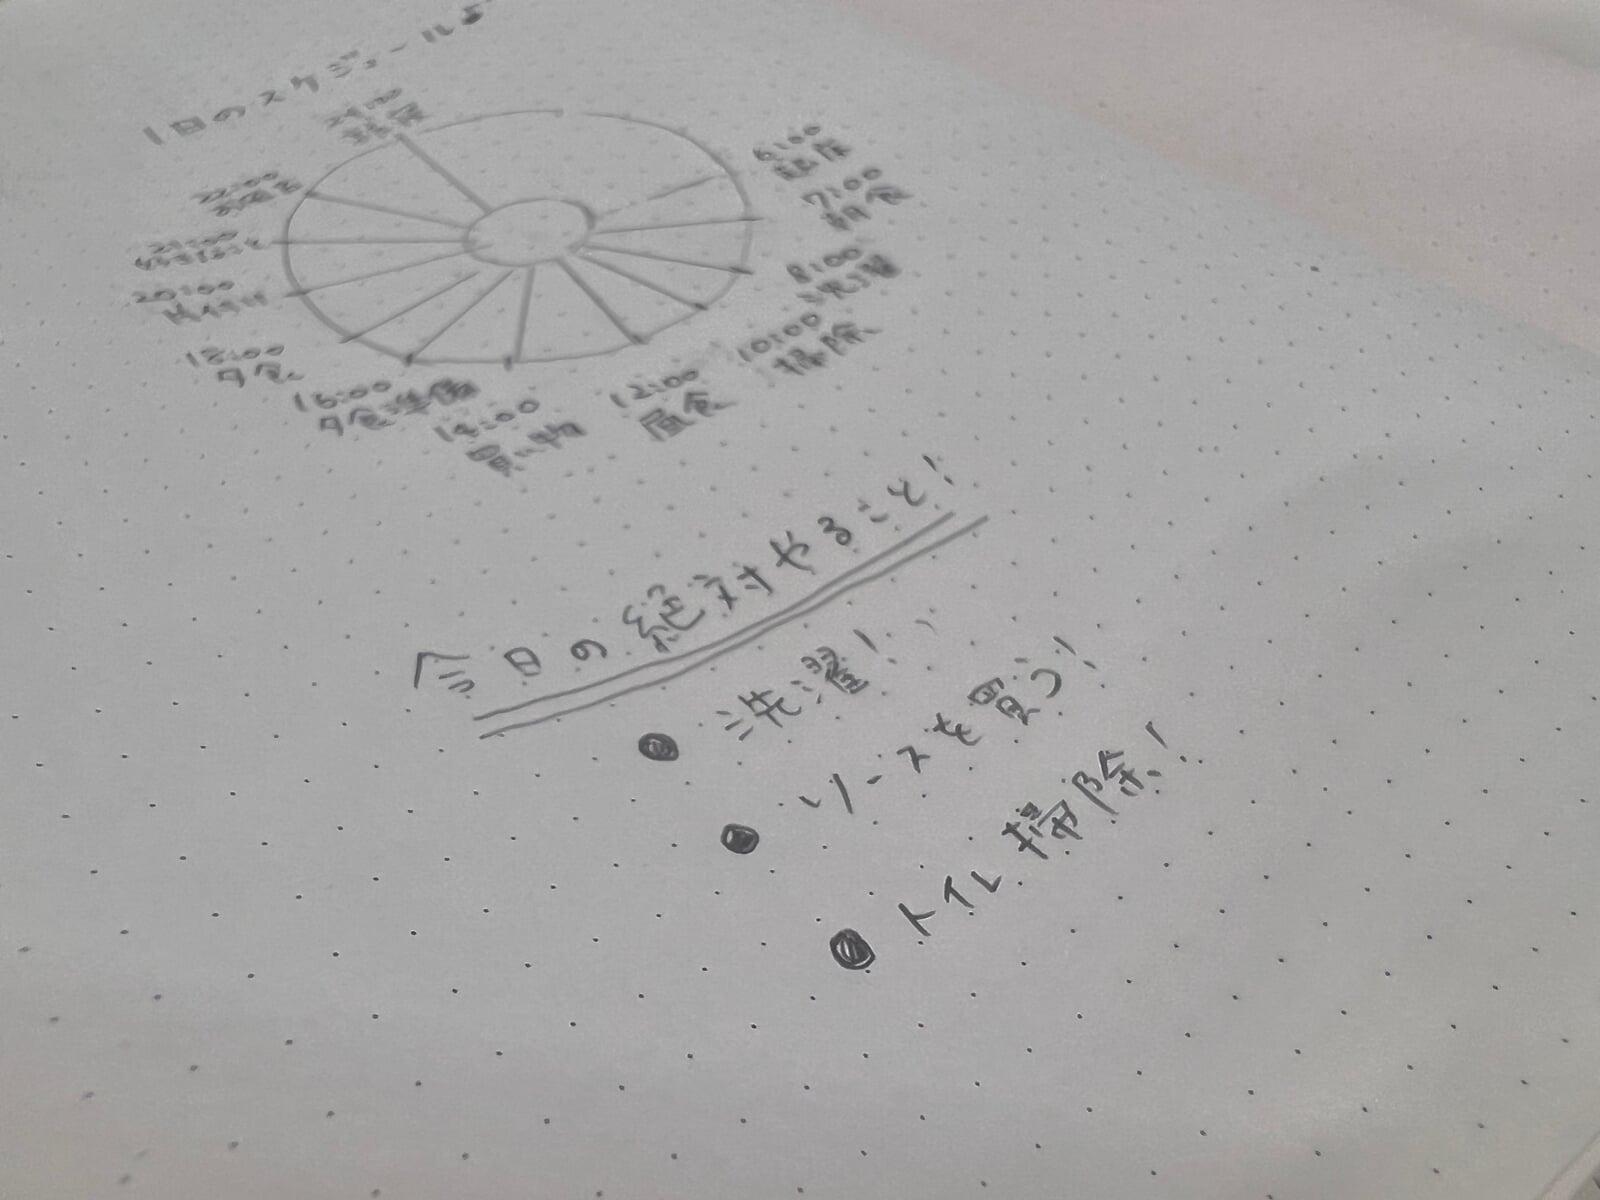 1日のスケジュール
24:00
就寝
22:00
お風呂
21:00
20:00
18:00
夕食
16:00
夕食準備
14:00
買い物
12:00
昼食
10:00
掃除
8:00
洗濯
7:00
朝食
6:00
起床
今日の絶対やること!
● 洗濯!
● ソースを買う!
● トイレ掃除!